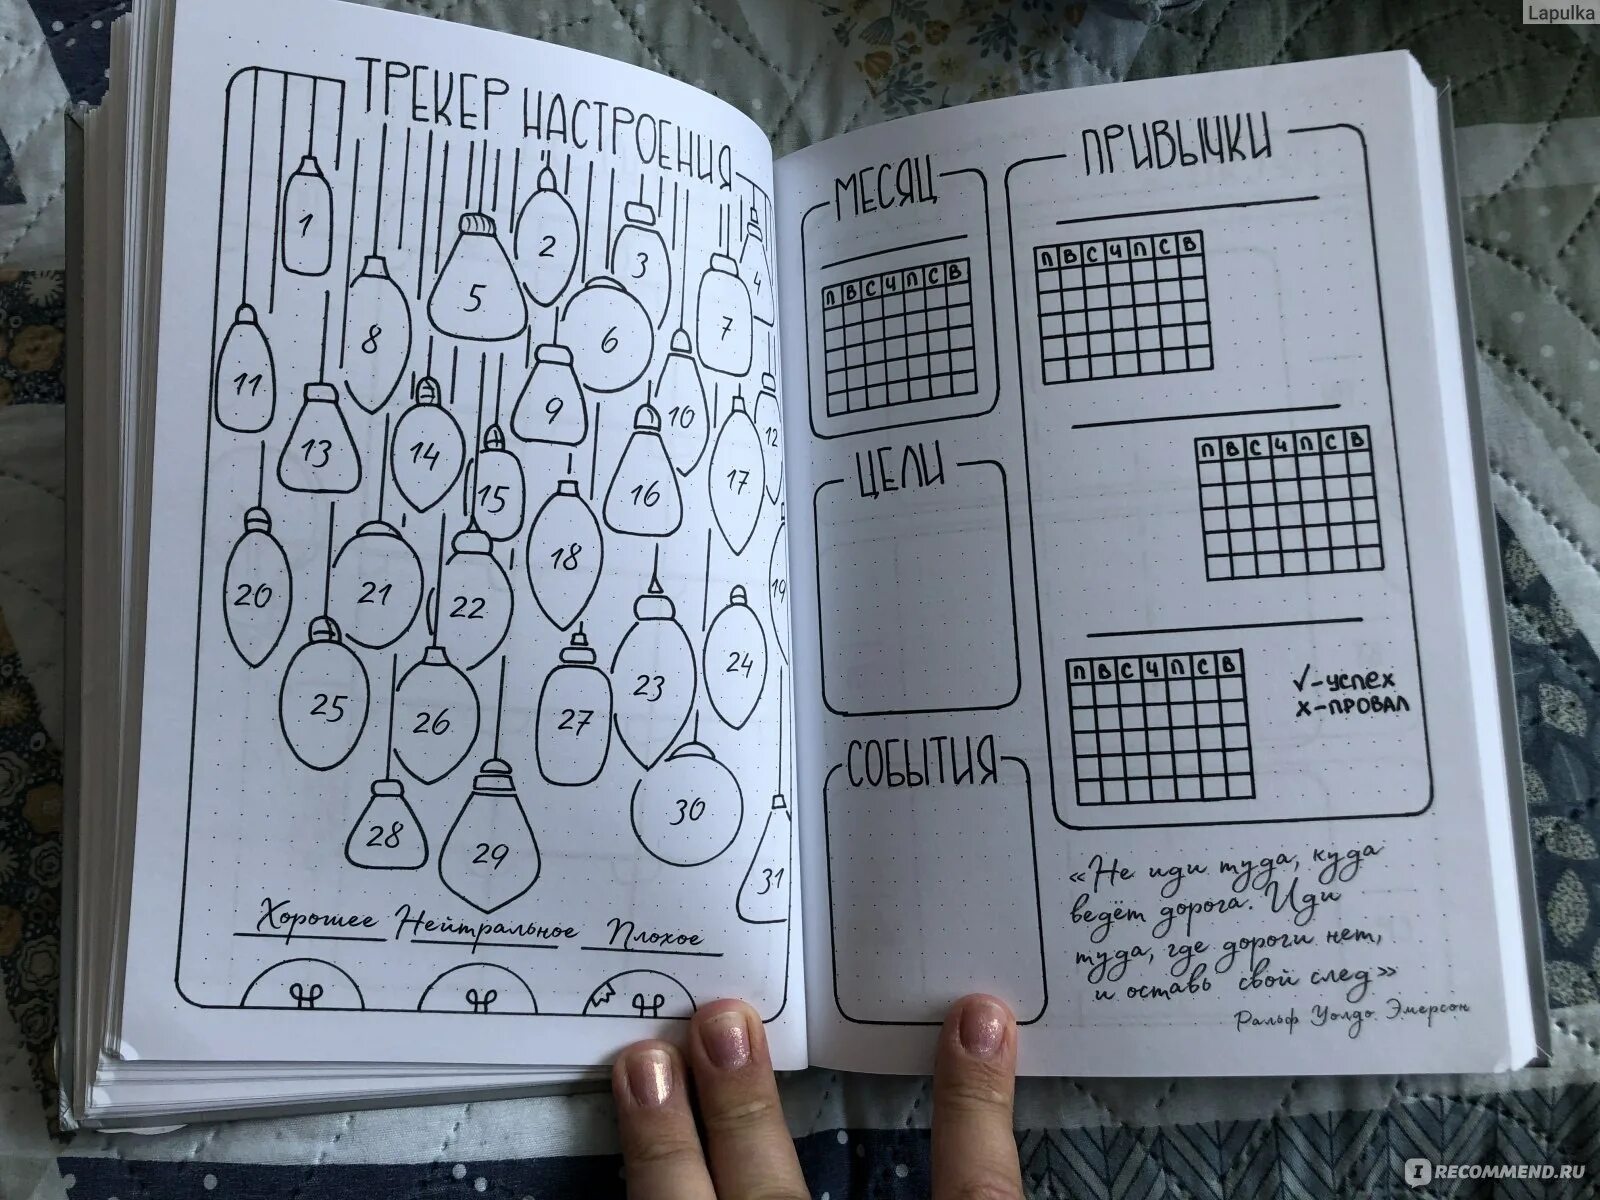 Lapulka
ТРЕКЕР НАСТРОЕНИЯ
1
2
3
4
5
6
7
8
9
10
11
12
13
14
15
16
17
18
19
20
21
22
23
24
25
26
27
28
29
30
31
Хорошее Нейтральное Плохое
МЕСЯЦ
П В С Ч П С В
ЦЕЛИ
СОБЫТИЯ
ПРИВЫЧКИ
П В С Ч П С В
П В С Ч П С В
П В С Ч П С В
√-УСПЕХ
Х-ПРОВАЛ
«Не иди туда, куда
ведёт дорога. Иди
туда, где дороги нет,
и оставь свой след»
Ральф Уолдо Эмерсон
IRECOMMEND.RU